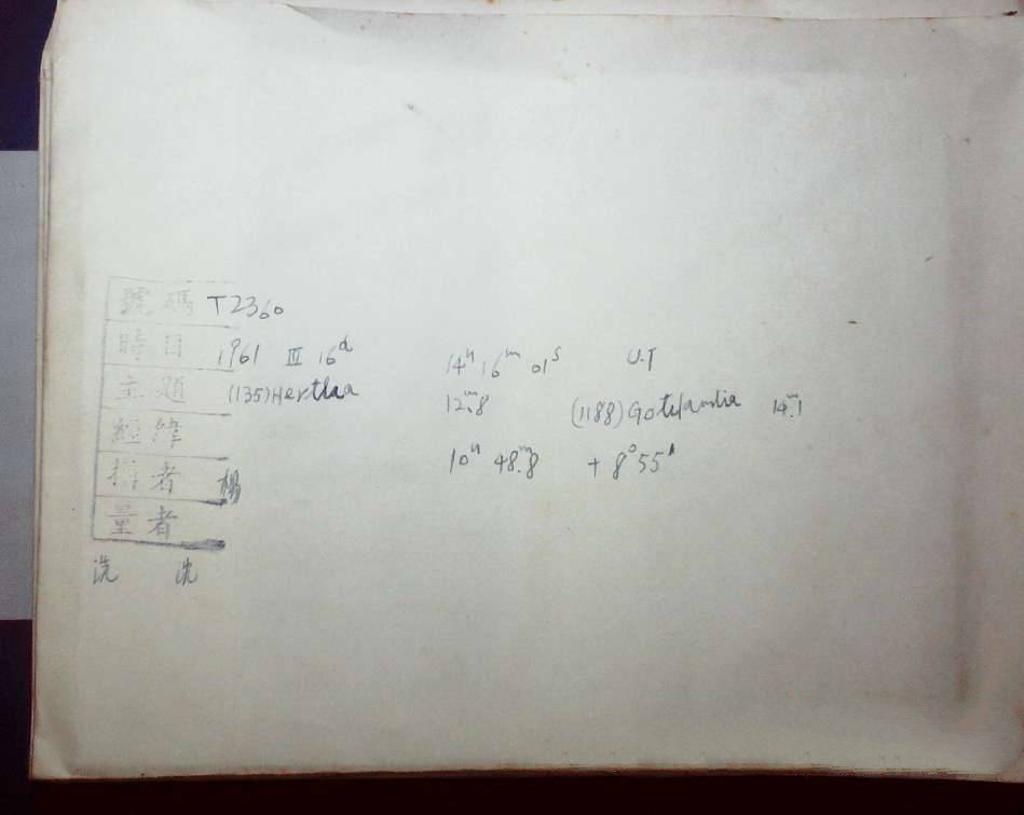 號碼 T2360
時日 1961 III 16ᵈ 14ʰ 16ᵐ 01ˢ U.T
主題 (135) Hertha 12ᵐ.8 (1188) Gotlandia 14ᵐ.1
經緯 10ʰ 48ᵐ.8 + 8°55'
拍者 楊
量者
洗 沈